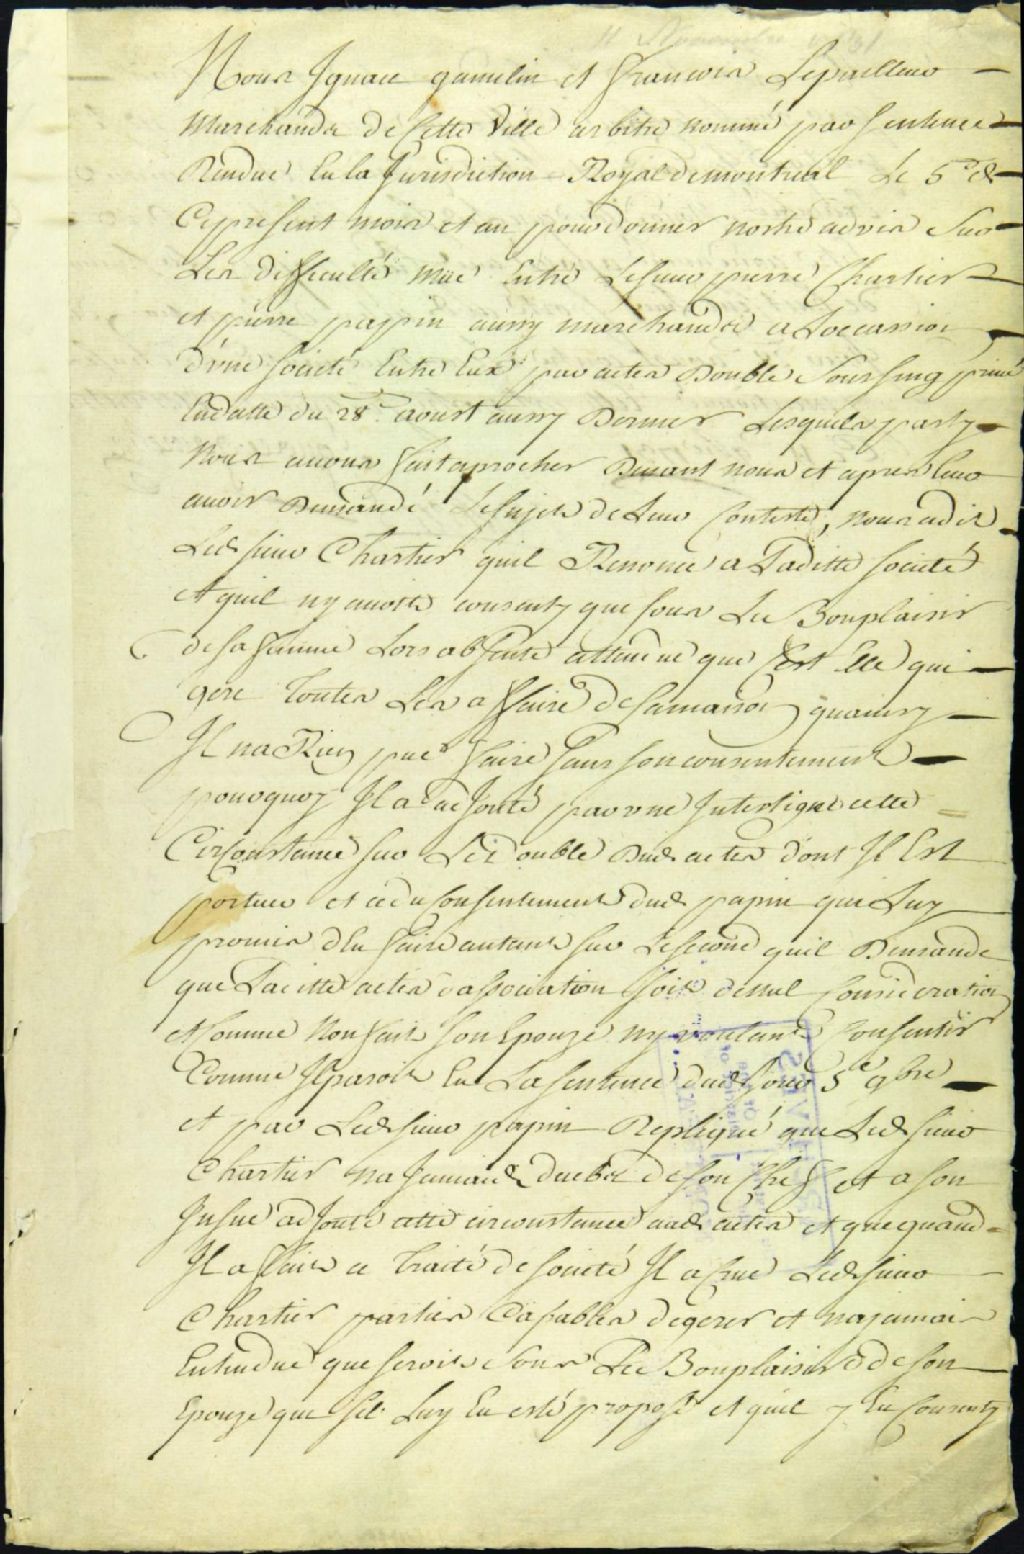 Nous Ignace gamelin et francois Lepailleur
Marchands de Cette Ville arbitre nommé par sentence
Rendue En la Jurisdiction Royal de montreal Le 5e de
Ce present mois et an pour donner nostre advis Sur
Les difficulté müe Entre Le sieur pierre Chartier
et pierre pappin aussy marchande a Loccasion
d'une societé Entre Eux par actes Double Sous sing privé
En datte du 28e aoust aussy Dernier Lesquels party
Nous avons fait aprocher Devant nous et apres leur
avoir Demandé Le sujets de Leur Conteste, nous a dit
Led. sieur Chartier quil Renonce a Laditte societé
et quil ny avoit consenty que sous Le Bonplaisir
de sa femme Lors absente attendue que Cest Elle qui
gere toutes Les affaire de sa maison quainsy
Il na Rien pue faire sans son consentement
pourquoy Il a adjouté par une Interligne cette
Circonstance sur Le Double Dud. actes dont Il Est
porteur et ce du Consentement dud. papin qui Luy
promis d'En faire autant sur Le second quil Demande
que Laditte actes d'association soit de nul Consideration
et Comme Non fait son Epouze ny voulant Consentir
Comme Il paroit En La sentence dud. Jour 5e 9bre
et par Led. sieur papin Repliqué que Led. sieur
Chartier na Jamais de son Chef et a son
Insue adjouté cette circonstance aud. actes et que quand
Il a fait ce traité de societé Il a Crue Led. sieur
Chartier parties Capables de gerer et na jamais
Entendue que seroit Sous Le Bonplaisir de son
Epouze que sil Luy En esté proposé et quil y En Consenty